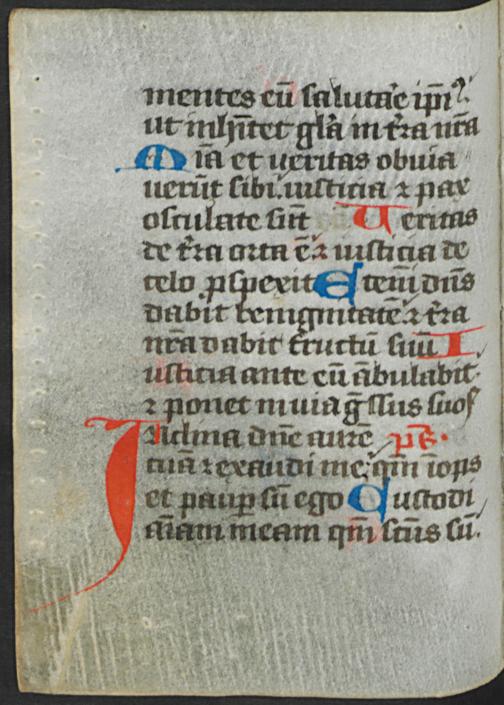 mentes eū salutar̄e ip̄i⁹
ut inh̄itet gl̄a in t̄ra nr̄a
M ia et ueritas obuia
uerūt sibi. iusticia ⁊ pax
osculate sūt Ueritas
de t̄ra orta ē. ⁊ iusticia de
celo ꝓspexit Eteni dn̄s
dabit benignitatē. ⁊ t̄ra
nr̄a dabit fructū suū I
usticia ante eū ābulabit.
⁊ ponet in uia ḡssus suos
Inclina dn̄e aurē p̄s.
tuā ⁊ exaudi me. qm̄ īops
et paup̄ sū ego Custodi
aīam meam qm̄ sc̄us sū.